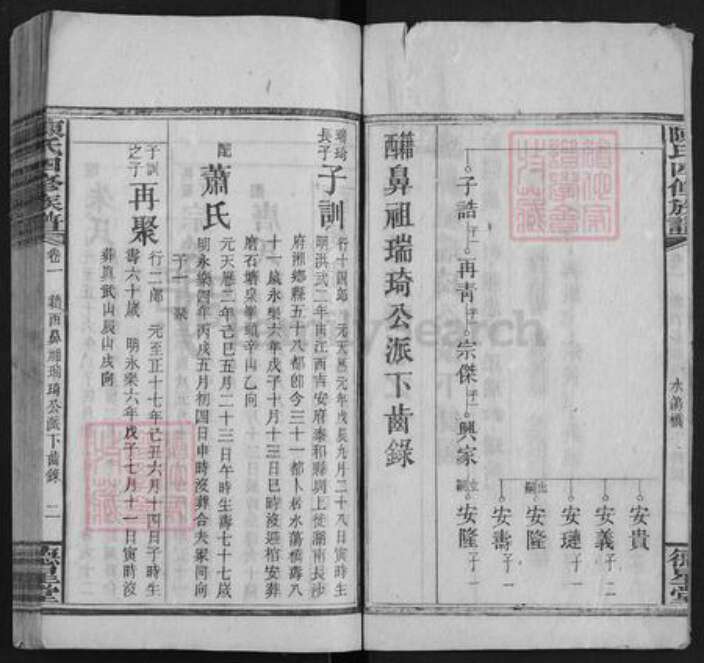 陳氏四修族譜
水蕩橋
子誥 子一
再青 子一
宗傑 子一
興家
安貴
安義 子二
安璉 子一
安隆 出嗣
安壽 子一
安隆 子一
鼻祖瑞琦公派下齒錄
瑞琦長子 子訓 行十四郎 元天曆元年戊辰九月二十八日寅時生
明洪武二年由江西吉安府泰和縣圳上徙湖南長沙
府湘鄉縣五十八都卽今三十一都卜居水蕩橋壽八
十一歲永樂六年戊子十月十三日巳時沒 棺安葬
磨石塘 辛山乙向
配 蕭氏 元天曆二年己巳五月二十三日午時生壽七十七歲
明永樂四年丙戌五月初四日申時沒葬合夫冢同向
子一 聚
子訓之子 再聚 行二郎 元至正十七年 丑六月十四日子時生
壽六十歲 明永樂六年戊子七月十一日寅時沒
葬真武山辰山戌向
陳氏四修族譜 卷一 鼻祖瑞琦公派下齒錄 二